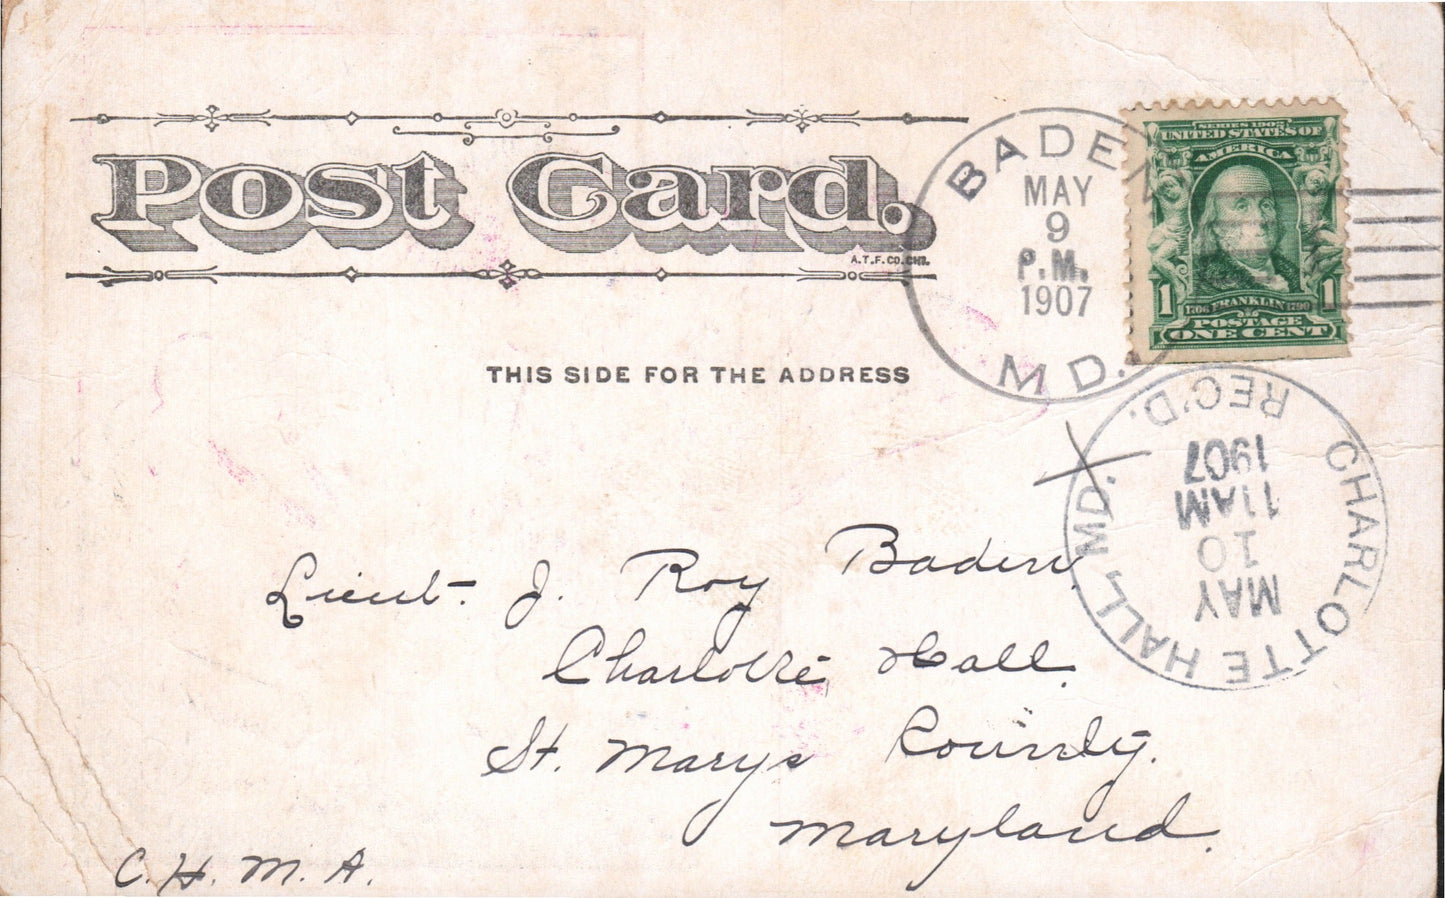 Post Card.
A.T.F.CO.CHI.
THIS SIDE FOR THE ADDRESS
BADEN
MAY
9
P.M.
1907
MD.
SERIES 1902
UNITED STATES OF
AMERICA
1 1706 FRANKLIN 1790 1
POSTAGE
ONE CENT
CHARLOTTE HALL, MD.
REC'D.
MAY
10
11AM
1907
Lieut. J. Roy Baden
Charlotte Hall.
St. Marys County.
Maryland.
C. H. M. A.